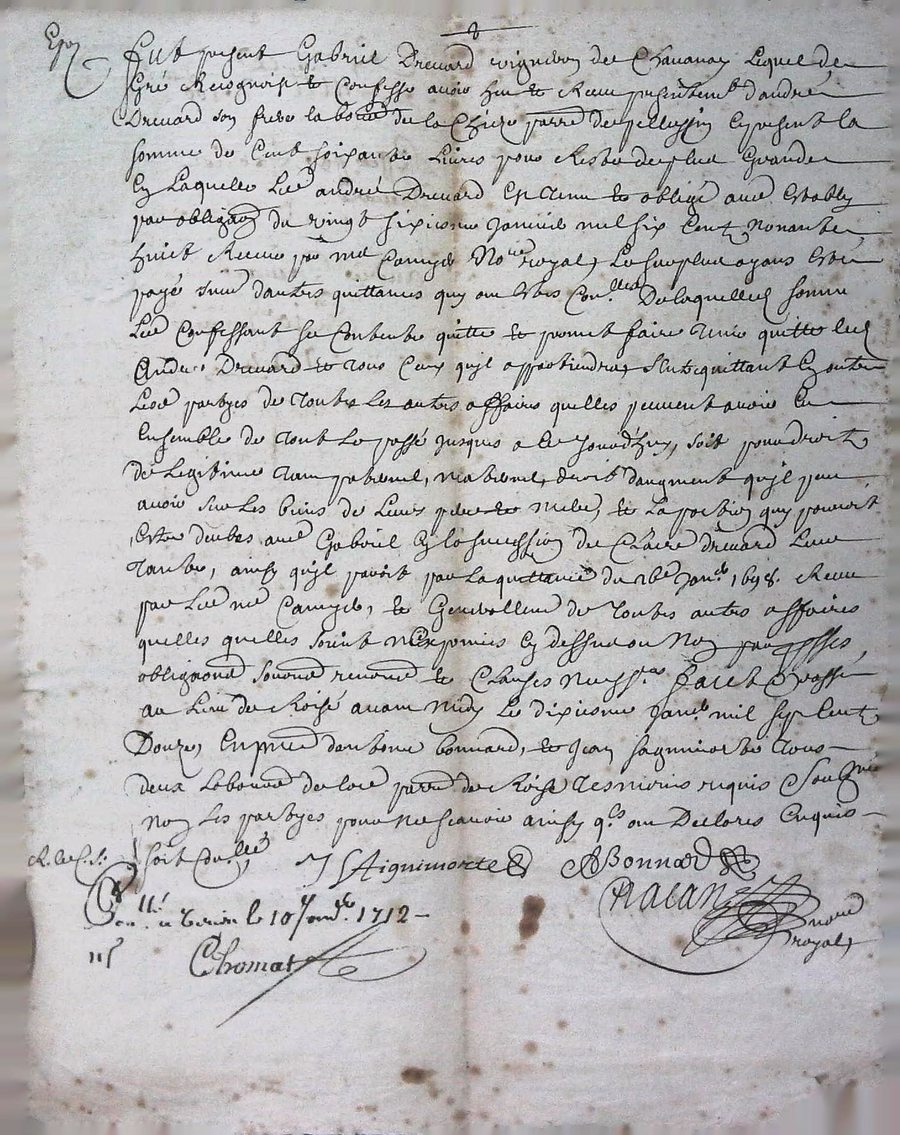 Fut present Gabriel Drevard vigneron de Chavanay Lequel de
Gré Recognoist et Confesse avoir heu et Receu presentemt d'andré
Drevard son frere labour de la Chize parre de pellussin Cy present la
somme de Cent soixante Livres pour Reste de plus Grande
En Laquelle Led andré Drevard Est tenu et obligé avec Estably
par obligaon du vingt sixiesme Janvier mil six Cent Nonante
huict Receue par me Camyer Nore royal, Le surplus ayant Esté
payé sur d'autres quittances quy ont Estés Conllées De laquelle somme
Led Confessant se Contente quitte et promet faire tenir quitte led
André Drevard et tous Ceux qu'il appartiendra, s'entrequittant En outre
Lesd partyes de toutes Les autres affaires quelles peuvent avoir Eu
Ensemble de tout Le passé jusques a Ce Jourd'huy, soit pour droit
de Legitime tant paternel, maternel, droit d'augment qu'il peu
avoir sur Les biens de Leurs pere et mere, et La portion quy pouvoit
Estre deube aud Gabriel En la succession de Claire Drevard Leur
Tante, ainsy qu'il paroit par La quittance du 26e Janr 1698. Receue
par Led me Camyer, et Generallement de toutes autres affaires
quelles quelles soint N'Exprimées Cy dessus ou Non par
obligaons soumons renonons et Clauses necessres Faict et passé
au Lieu de Roisé avant midy Le dixiesme Janr mil sept Cent
Douze, En pnce d'antoine bonnard, et Jean saignimorte tous
deux Laboureurs de lad parre de Roisé tesmoins requis Soubznés
Non Les partyes pour ne scavoir ainsy qes ont Declorés Enquis
soit Conllé
J SAignimorte
ABonnard
Racan
nore
royal
Conllé a le 10e Janvr 1712
Chomat